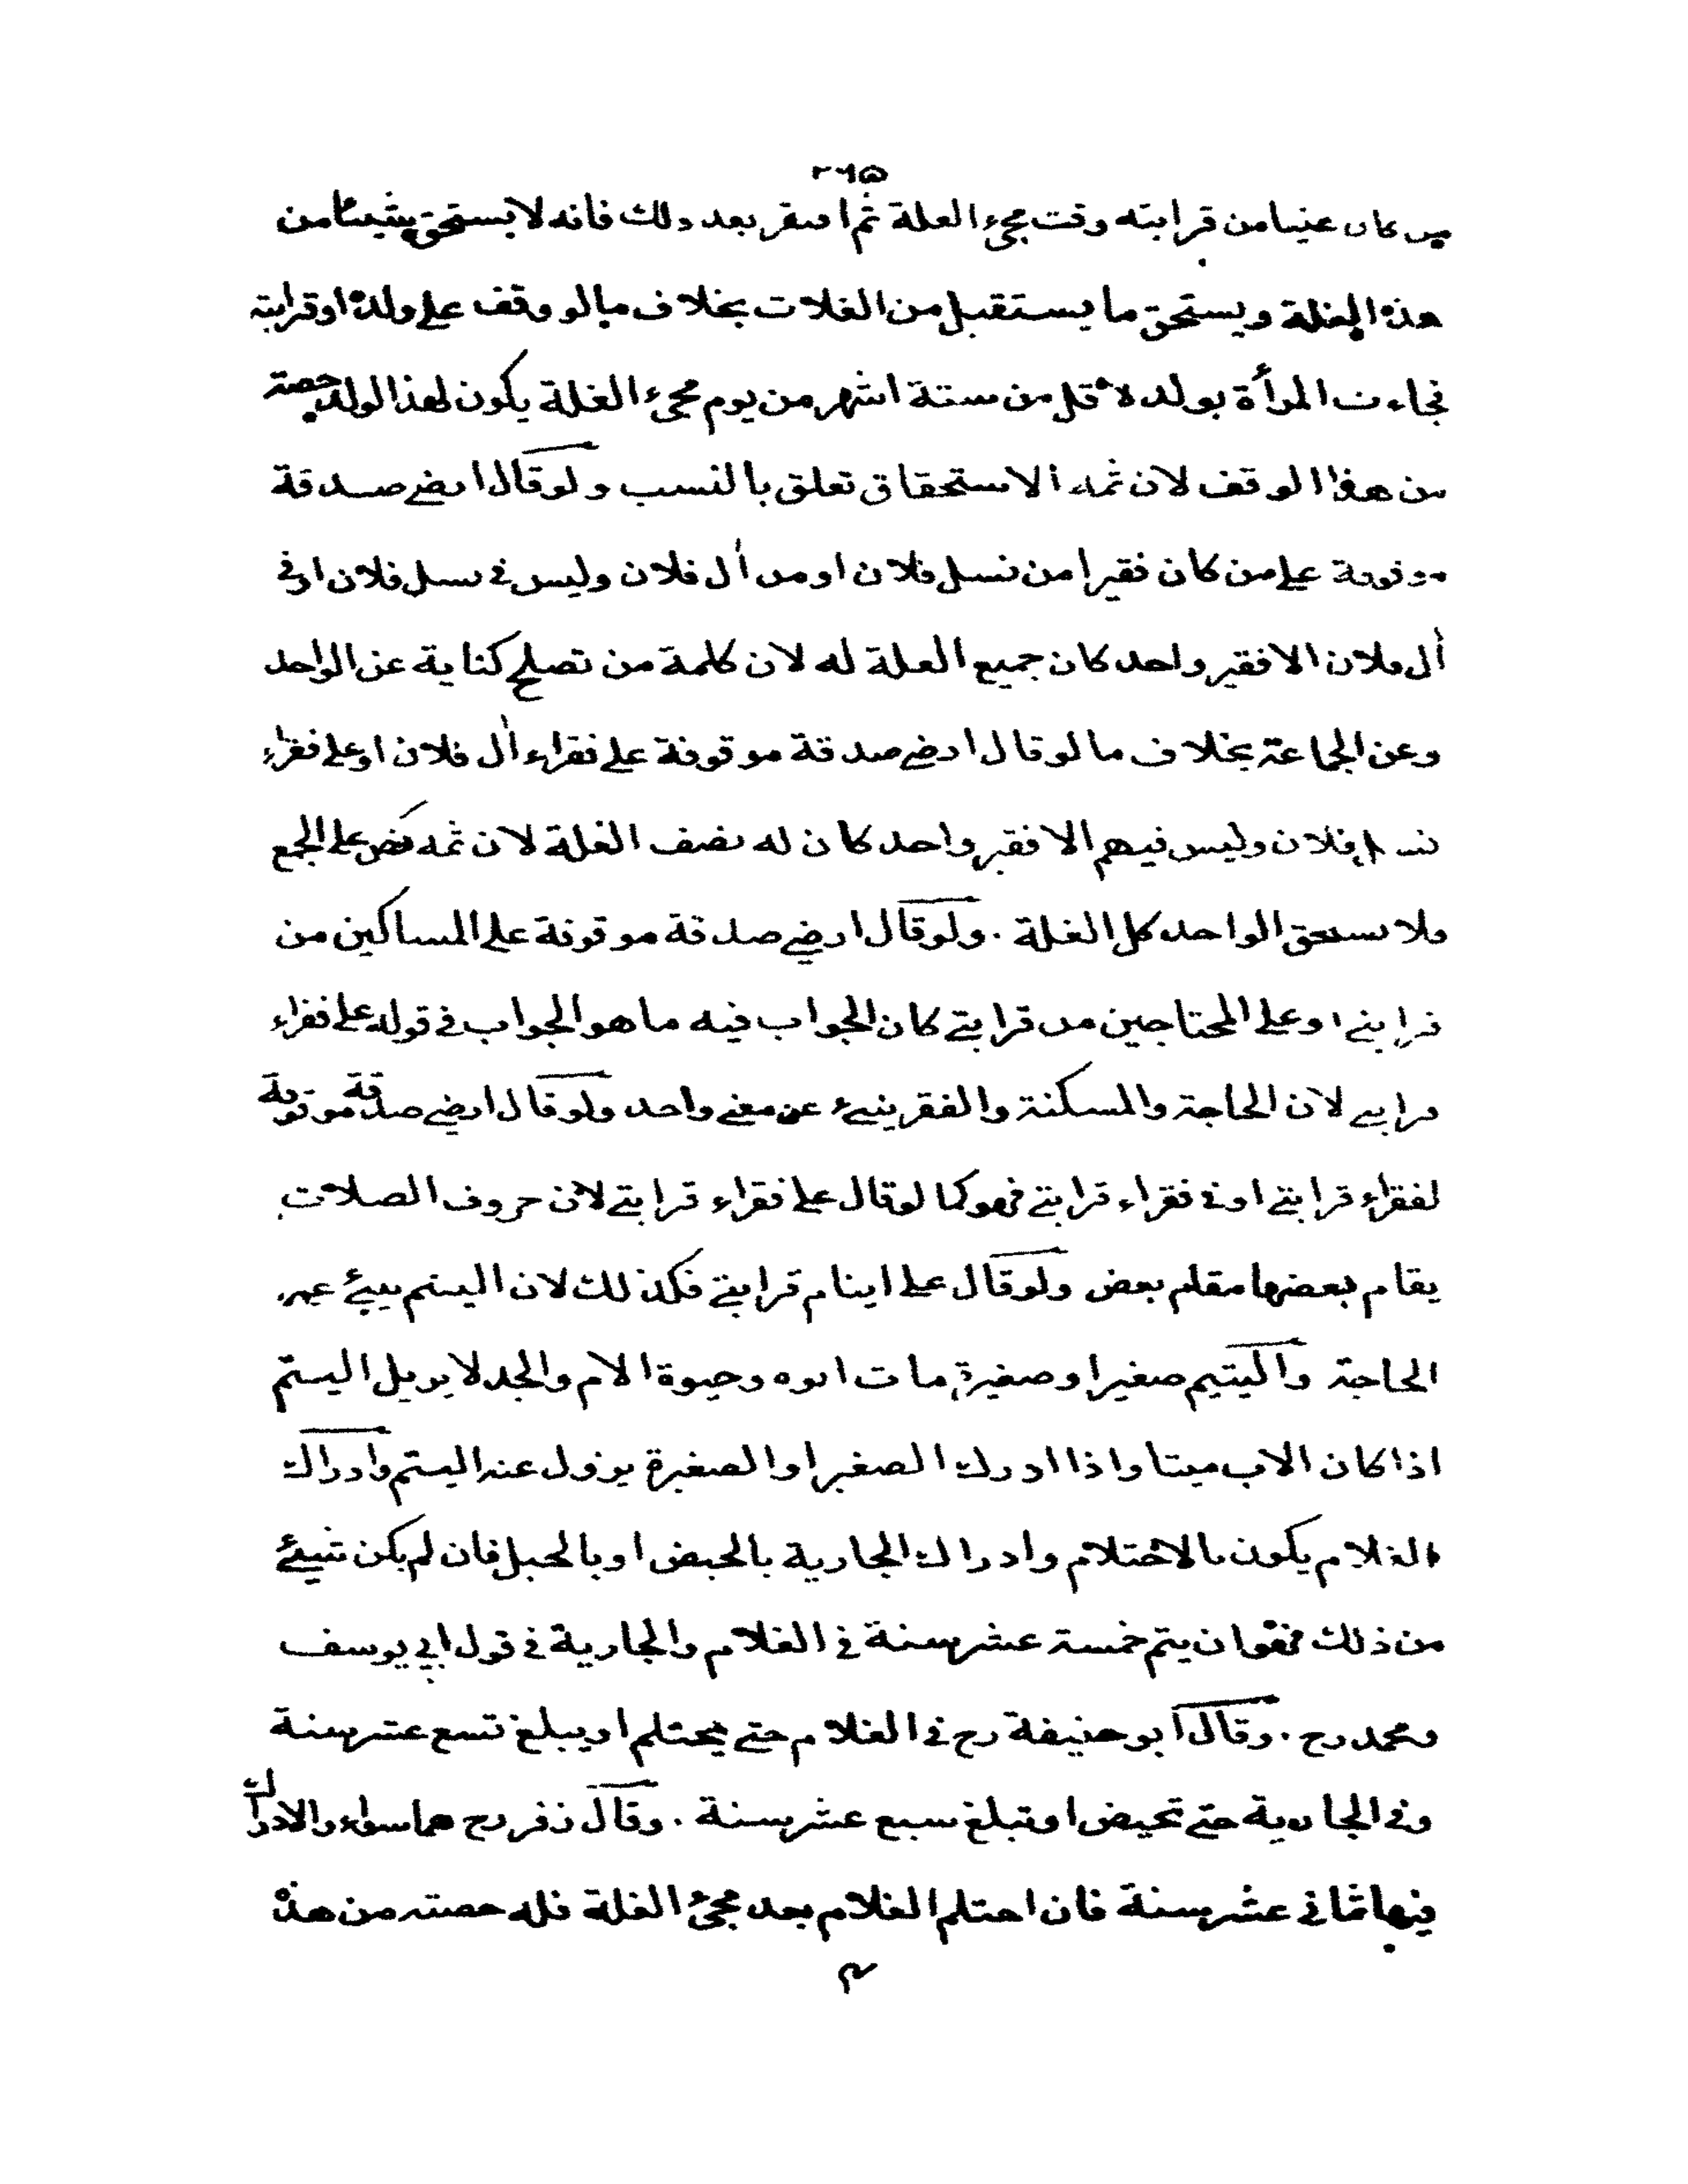 ٢٦٥
من كان غنيا من قرابته وقت مجئ الغلة ثم افتقر بعد ذلك فانه لا يستحق شيئا من
هذه الغلة ويستحق ما يستقبل من الغلات بخلاف ما لو وقف على ولده او قرابته
فجاءت المرأة بولد لاقل من ستة اشهر من يوم مجئ الغلة يكون لهذا الولد حصة
من هذا الوقف لان ثمه الاستحقاق تعلق بالنسب ولو قال ارضي صدقة
موقوفة على من كان فقيرا من نسل فلان او من أل فلان وليس في نسل فلان او في
أل فلان الا فقير واحد كان جميع الغلة له لان كلمة من تصلح كناية عن الواحد
وعن الجماعة بخلاف ما لو قال ارضي صدقة موقوفة على فقراء أل فلان او على فقراء
نسل فلان وليس فيهم الا فقير واحد كان له نصف الغلة لان ثمه نص على الجمع
فلا يستحق الواحد كل الغلة . ولو قال ارضي صدقة موقوفة على المساكين من
قرابتي او على المحتاجين من قرابتي كان الجواب فيه ما هو الجواب في قوله على فقراء
قرابتي لان الحاجة والمسكنة والفقر ينبئ عن معنى واحد ولو قال ارضي صدقة موقوفة
لفقراء قرابتي او في فقراء قرابتي فهو كما لو قال على فقراء قرابتي لان حروف الصلات
يقام بعضها مقام بعض ولو قال على ايتام قرابتي فكذلك لان اليتيم ينبئ عن
الحاجة واليتيم صغير او صغيرة مات ابوه وحيوة الام والجد لا يزيل اليتم
اذا كان الاب ميتا واذا ادرك الصغير او الصغيرة يزول عنه اليتم وادراك
الغلام يكون بالاحتلام وادراك الجارية بالحيض او بالحبل فان لم يكن شيئ
من ذلك فهو ان يتم خمسة عشر سنة في الغلام والجارية في قول ابي يوسف
ومحمد رح . وقال ابو حنيفة رح في الغلام حتى يحتلم او يبلغ تسع عشر سنة
وفي الجارية حتى تحيض او تبلغ سبع عشر سنة . وقال زفر رح هما سواء والادراك
فيها ثماني عشر سنة فان احتلم الغلام بعد مجئ الغلة فله حصته من هذه